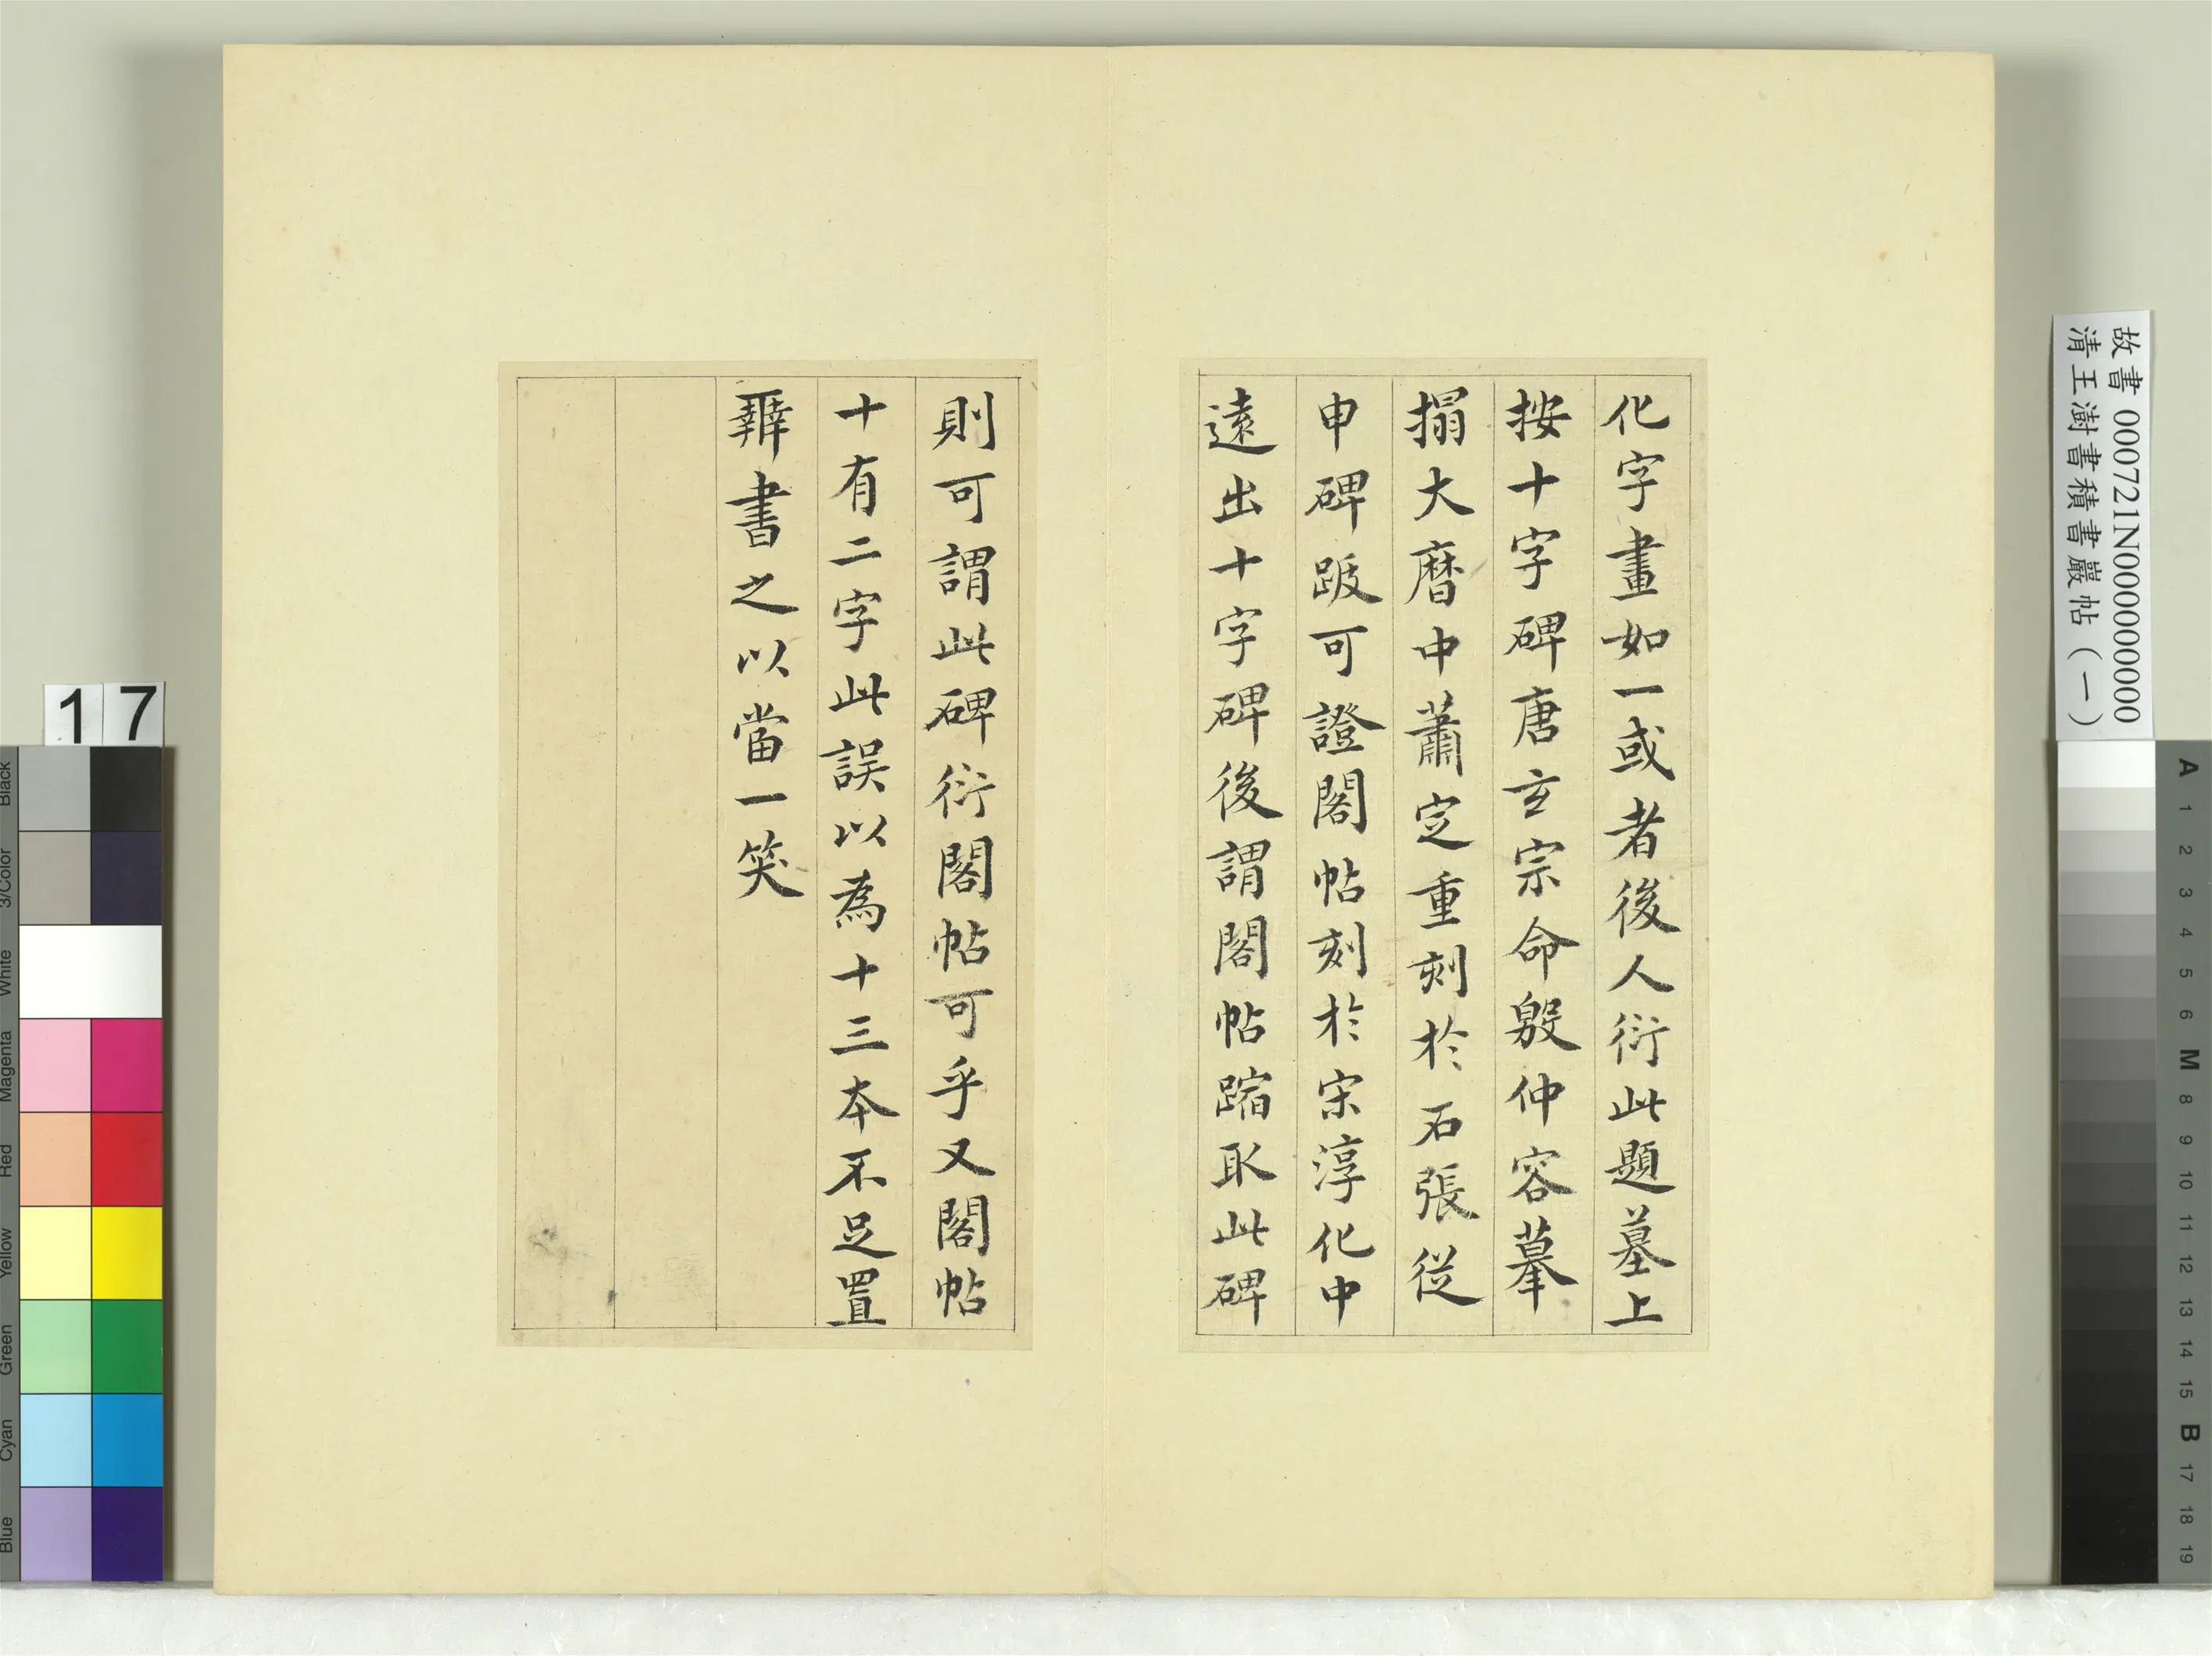 化字畫如一或者後人衍此題墓上
按十字碑唐玄宗命殷仲容摹
搨大曆中蕭定重刻於石張從
申碑跋可證閣帖刻於宋淳化中
遠出十字碑後謂閣帖蹜取此碑
則可謂此碑衍閣帖可乎又閣帖
十有二字此誤以為十三本不足置
辨書之以當一笑
故書 000721N000000000
清王澍書積書巖帖（一）
17
Black
3/Color
White
Magenta
Red
Yellow
Green
Cyan
Blue
A
1
2
3
4
5
6
M
8
9
10
11
12
13
14
15
B
17
18
19